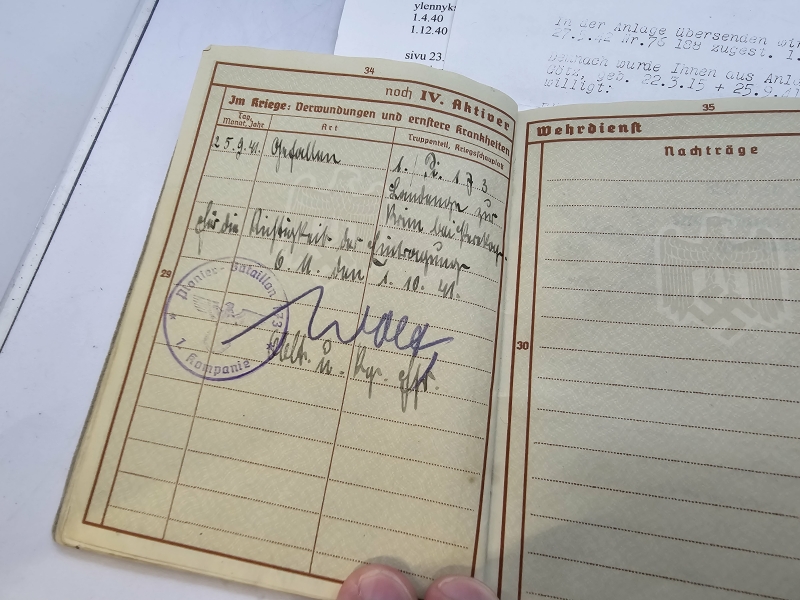 ylennyk:
1.4.40
1.12.40
sivu 23.
In der Anlage übersenden wir
27.9.42 Nr.
zugest. 1.
Demnach wurde Ihnen aus Anla
geb. 22.3.15 + 25.9.41
willigt:
34
noch IV. Aktiver
Im Kriege: Verwundungen und ernstere Krankheiten
Tag, Monat, Jahr
Art
Truppenteil, Kriegsschauplatz
25.9.41. Gefallen
1. Pi. 173
Landenge zur
Krim bei Perekop.
für die Richtigkeit der Eintragung
O. U. den 1.10.41.
Pionier-Bataillon 173
1. Kompanie
Oblt. u. Kp. Chef.
29
35
Wehrdienst
Nachträge
30